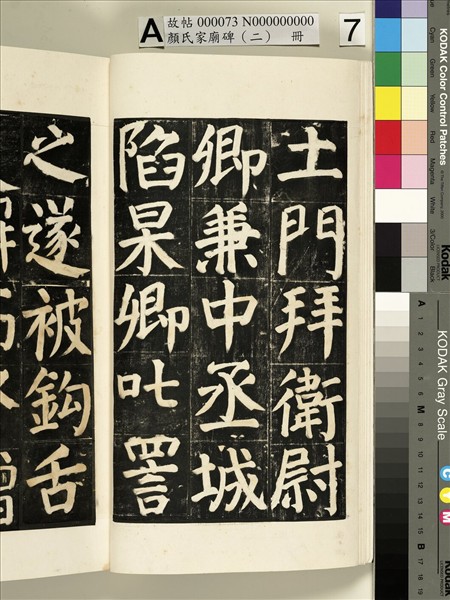 故帖 000073 N000000000
顏氏家廟碑（二） 冊
A
7
土門拜衛尉
卿兼中丞城
陷杲卿叱詈
之遂被鈎舌
KODAK Color Control Patches
Cyan
Green
Yellow
Red
Magenta
White
3/Color
Black
Kodak
KODAK Gray Scale
A 1 2 3 4 5 6 M 8 9 10 11 12 13 14 15 B 17 18 19
C
Y
M
Kodak